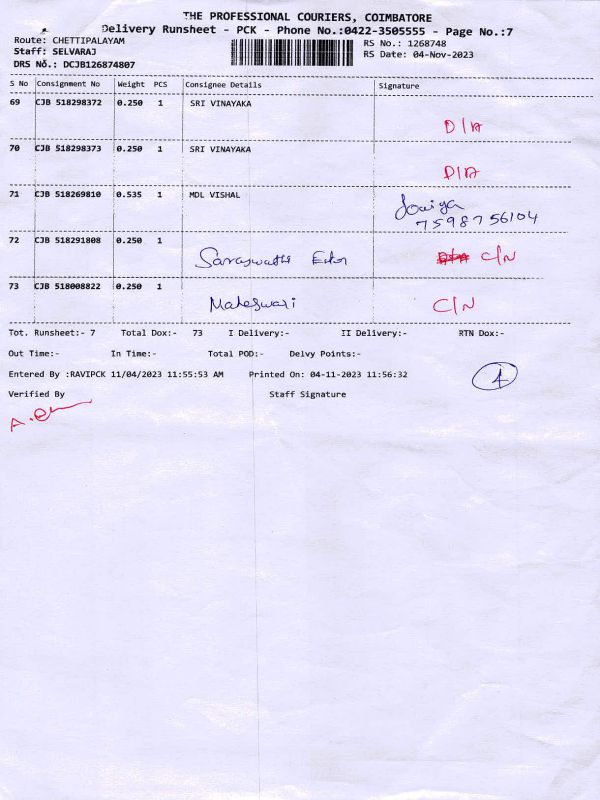 THE PROFESSIONAL COURIERS, COIMBATORE
Delivery Runsheet - PCK - Phone No.:0422-3505555 - Page No.:7
Route: CHETTIPALAYAM RS No.: 1268748
Staff: SELVARAJ RS Date: 04-Nov-2023
DRS No.: DCJB126874807
S No Consignment No Weight PCS Consignee Details Signature
69 CJB 518298372 0.250 1 SRI VINAYAKA
D/A
70 CJB 518298373 0.250 1 SRI VINAYAKA
D/A
71 CJB 518269810 0.535 1 MDL VISHAL
7598756104
72 CJB 518291808 0.250 1
Saraswathi C/N
73 CJB 518008822 0.250 1
Maheswari C/N
Tot. Runsheet:- 7 Total Dox:- 73 I Delivery:- II Delivery:- RTN Dox:-
Out Time:- In Time:- Total POD:- Delvy Points:-
Entered By :RAVIPCK 11/04/2023 11:55:53 AM Printed On: 04-11-2023 11:56:32
Verified By Staff Signature